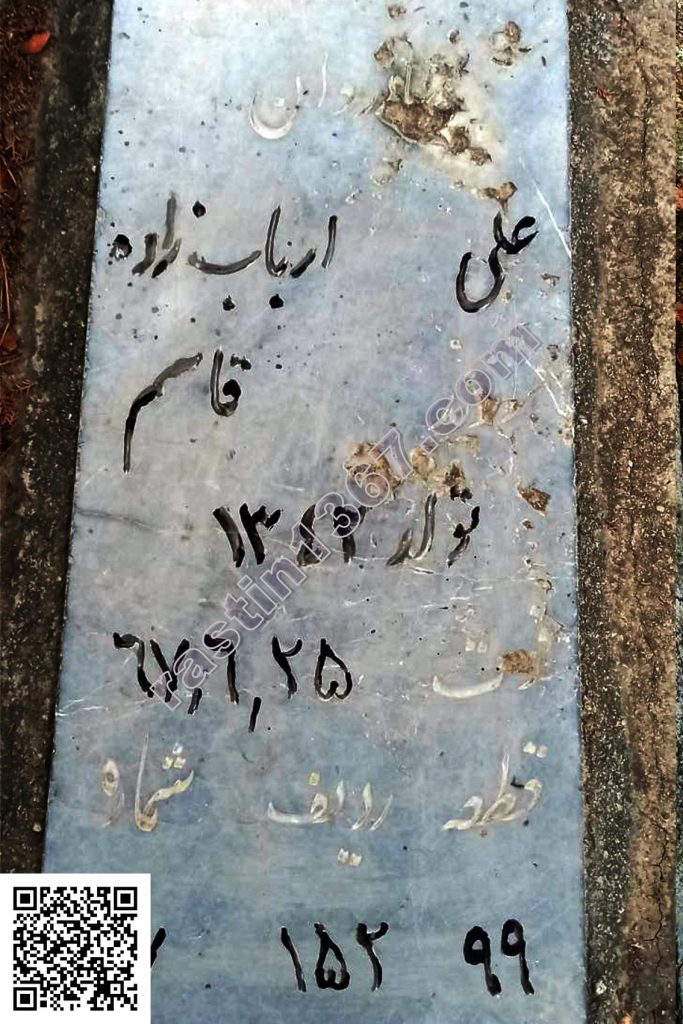 روان
علی ارباب زاده
قاسم
تولد ۱۳۴۲
۶۷٫۶٫۲۵
قطعه ردیف شماره
۹۹ ۱۵۲
rastin1367.com